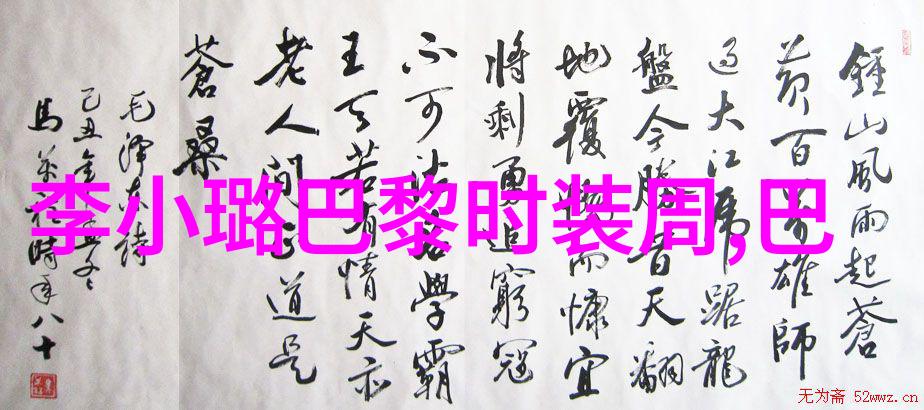 鍾山風雨起蒼
黄百万雄師
過大江虎踞龍
盤今勝昔天翻
地覆慨而慷宜
將剩勇追窮寇
不可沽名學霸
王天若有情天亦
老人间正道是
蒼桑
毛澤东詩
己丑冬
馬時年八十
李小璐巴黎时装周,巴
无为斋 52wwz.cn